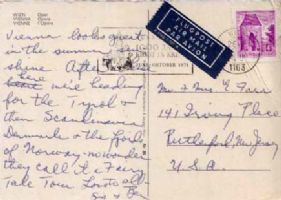 WIEN Oper
VIENNA Opera
VIENNE l'Opéra
Vienna looks great
in the summer
shine. After
here
we're heading
for the Tyrol &
then Scandinavia
Denmark & the fjords
of Norway. no wonder
they call it a Fairy
Tale Tour. Love to all
FLUGPOST
AIR MAIL
PAR AVION
OKTOBER 1971
1103
Mr & Mrs G.
141 Irving Place
Rutherford, N. Jersey
U.S.A.